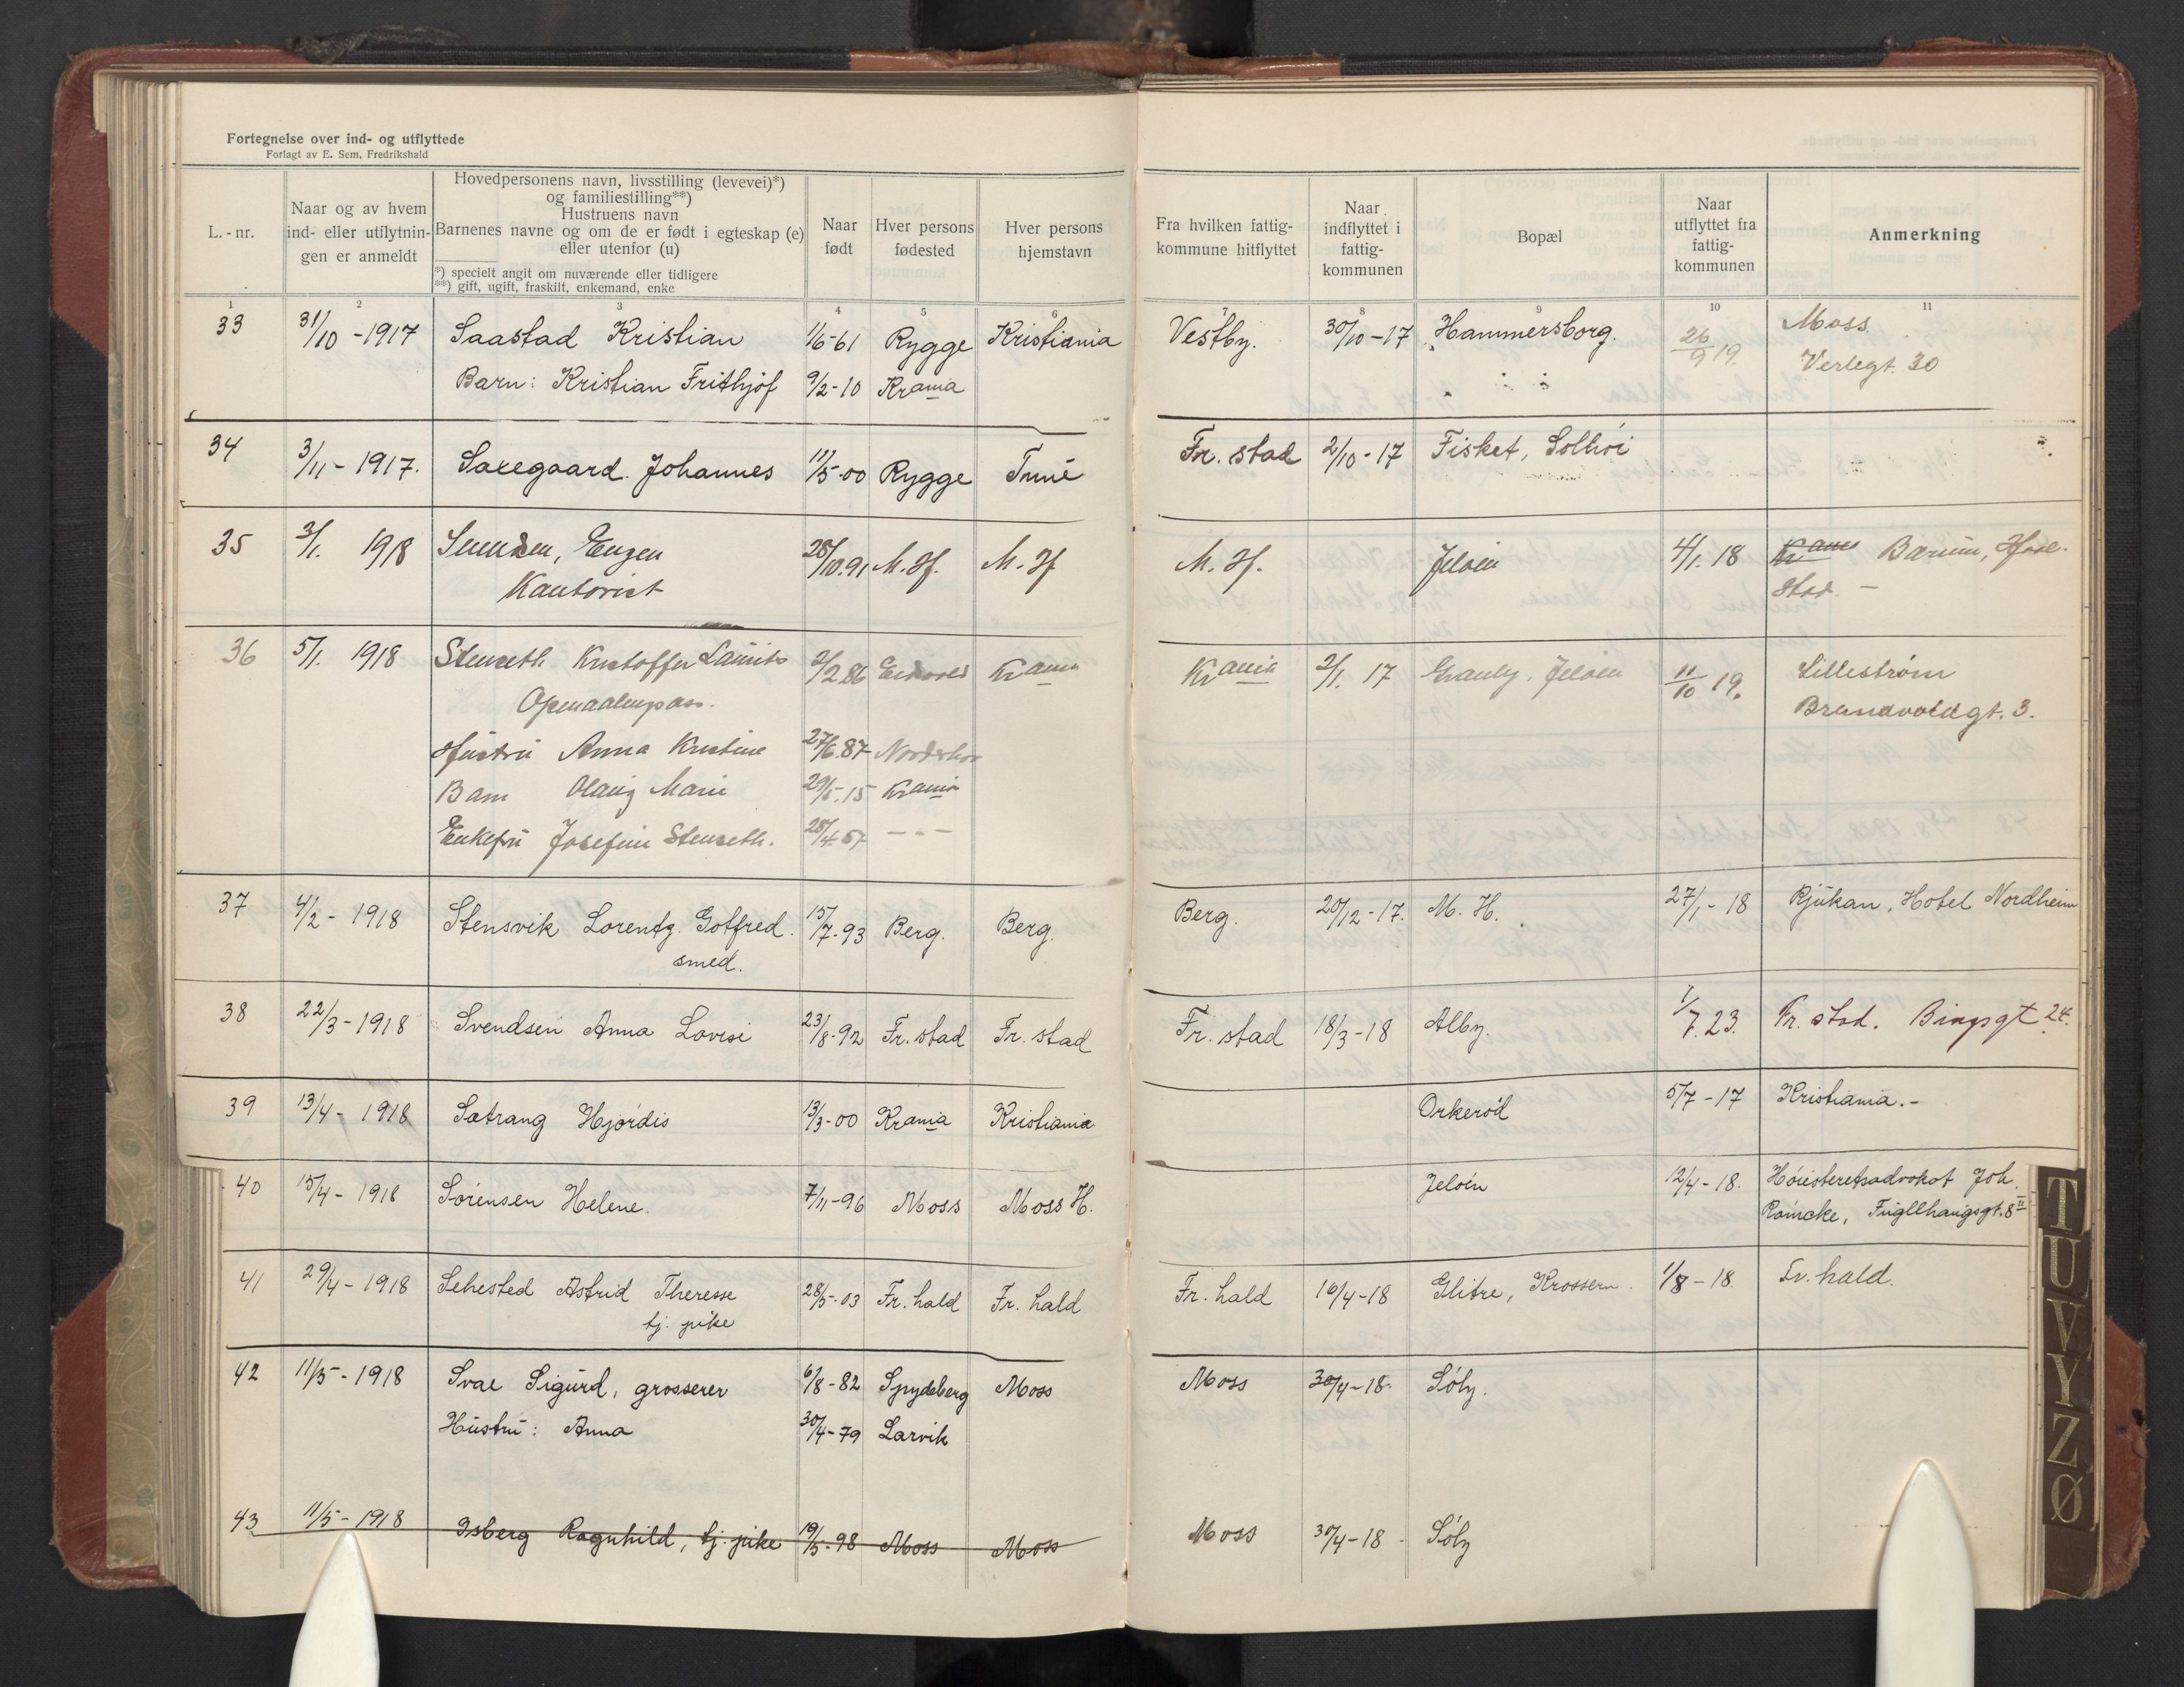 Fortegnelse over ind- og utflyttede
Forlagt av E. Sem, Fredrikshald
L.-nr.
Naar og av hvem ind- eller utflytningen er anmeldt
Hovedpersonens navn, livsstilling (levevei)*)
og familiestilling**)
Hustruens navn
Barnenes navne og om de er født i egteskap (e)
eller utenfor (u)
*) specielt angit om nuværende eller tidligere
**) gift, ugift, fraskilt, enkemand, enke
Naar født
Hver persons fødested
Hver persons hjemstavn
Fra hvilken fattig-kommune hitflyttet
Naar indflyttet i fattig-kommunen
Bopæl
Naar utflyttet fra fattig-kommunen
Anmerkning
1 2 3 4 5 6 7 8 9 10 11
33 31/10-1917 Saastad Kristian 1/6-61 Rygge Kristiania Vestby. 30/10-17 Hammersborg. 26/9 19. Moss.
Barn: Kristian Frithjof 9/2-10 Krania " " Verlegt. 30
34 3/11-1917. Saxegaard. Johannes 11/5-00 Rygge Tune Fr. stad 2/10-17 Fisket, Solhöi
35 3/1. 1918 Svendsen, Eugen 28/10.91 M. H. M. H M. H. Jeløen 4/1. 18 Krania Bærum, Hasl-
Kontorist stad. -
36 5/1. 1918 Stenseth Kristoffer Laurits 2/2.86 Eidsvold Krania Krania 2/1. 17 Granly, Jeløen 11/10 19. Lillestrøm
Brandvoldgt. 3.
Hustru Anna Kristine 27/6.87 Norderhov
Barn Olaug Marie 29/5.15 Krania
Enkefru Josefine Stenseth. 28/4 57 - - -
37 4/2-1918 Stensvik Lorentz. Gotfred. 15/7-93 Berg. Berg. Berg. 20/12-17. M. H. 27/1-18 Rjukan, Hotel Nordheim
smed.
38 22/3-1918 Svendsen Anna Lovise 23/8-92 Fr. stad Fr. stad Fr. stad 18/3-18 Alby. 1/7.23. Fr. stad. Bingsgt 24.
39 13/4-1918 Sætrang Hjördis 13/3-00 Krania Kristiania Orkeröd 5/7-17 Kristiania.-
40 15/4-1918 Sörensen Helene. 7/11-96 Moss Moss H. Jelöen 12/4-18. Höiesteretsadvokat Joh.
Röincke, Fuglehaugsgt. 8 II
41 29/4-1918 Sehested Astrid Theresse 28/5-03 Fr. hald Fr. hald Fr. hald 16/4-18 Glitre, Krossern. 1/8-18. Fr. hald.
tj. pike
42 11/5-1918 Svae Sigurd, grosserer 6/8-82 Spydeberg Moss Moss 30/4-18. Söly.
Hustru: Anna 30/4-79 Larvik
43 11/5-1918 Isberg Ragnhild, tj. pike 19/5-98 Moss Moss Moss 30/4-18 Söly
T
U
V
Y
Z
Ø